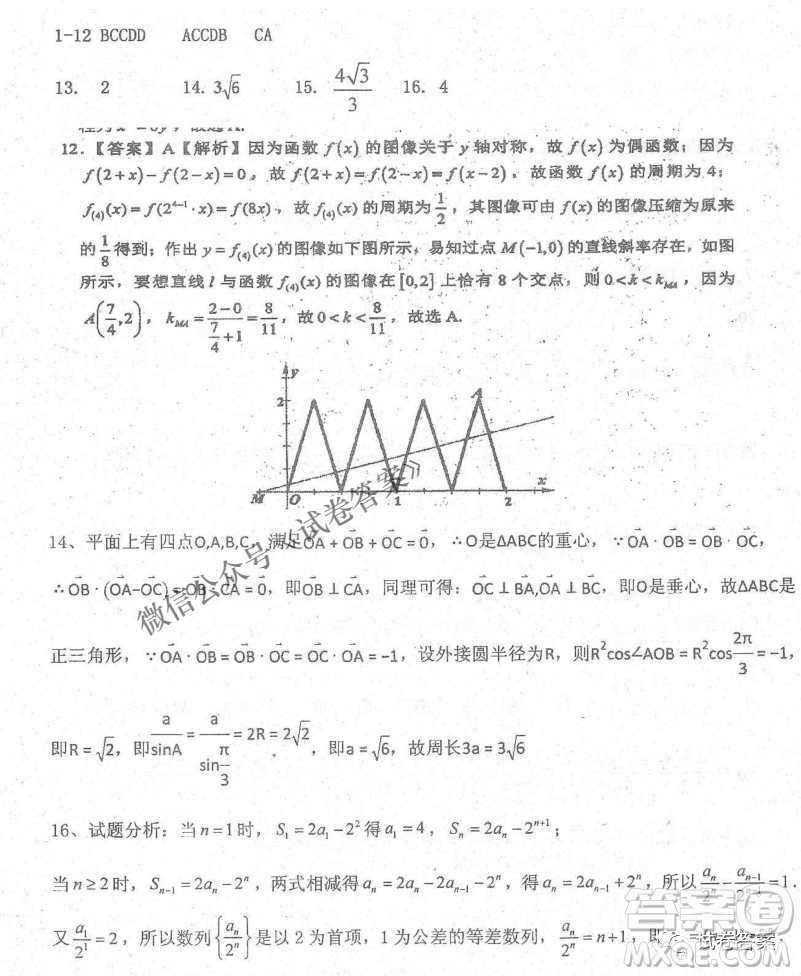 1-12 BCCDD ACCDB CA
13. 2 14. 3√6 15. 4√3/3 16. 4
12.【答案】A【解析】因为函数 f(x) 的图像关于 y 轴对称，故 f(x) 为偶函数；因为
f(2+x)-f(2-x)=0，故 f(2+x)=f(2-x)=f(x-2)，故函数 f(x) 的周期为 4；
f₍₄₎(x)=f(2⁴⁻¹·x)=f(8x)，故 f₍₄₎(x) 的周期为 1/2，其图像可由 f(x) 的图像压缩为原来
的 1/8 得到；作出 y=f₍₄₎(x) 的图像如下图所示，易知过点 M(-1,0) 的直线斜率存在，如图
所示，要想直线 l 与函数 f₍₄₎(x) 的图像在 [0,2] 上恰有 8 个交点，则 0<k<k_MA，因为
A(7/4,2)，k_MA=(2-0)/(7/4+1)=8/11，故 0<k<8/11，故选 A.
y
2
A
M O 1 2 x
14、平面上有四点O,A,B,C，满足OA+OB+OC=0，∴O是ΔABC的重心，∵OA·OB=OB·OC，
∴OB·(OA-OC)=OB·CA=0，即OB⊥CA，同理可得：OC⊥BA,OA⊥BC，即O是垂心，故ΔABC是
正三角形，∵OA·OB=OB·OC=OC·OA=-1，设外接圆半径为R，则R²cos∠AOB=R²cos2π/3=-1，
即R=√2，即a/sinA=a/sinπ/3=2R=2√2，即a=√6，故周长3a=3√6
16、试题分析：当 n=1 时，S₁=2a₁-2² 得 a₁=4，Sₙ=2aₙ-2ⁿ⁺¹；
当 n≥2 时，Sₙ₋₁=2aₙ-2ⁿ，两式相减得 aₙ=2aₙ-2aₙ₋₁-2ⁿ，得 aₙ=2aₙ₋₁+2ⁿ，所以 aₙ/2ⁿ-aₙ₋₁/2ⁿ⁻¹=1.
又 a₁/2¹=2，所以数列{aₙ/2ⁿ}是以 2 为首项，1 为公差的等差数列，aₙ/2ⁿ=n+1，即
微信公众号《试卷答案》
答案圈
试卷答案